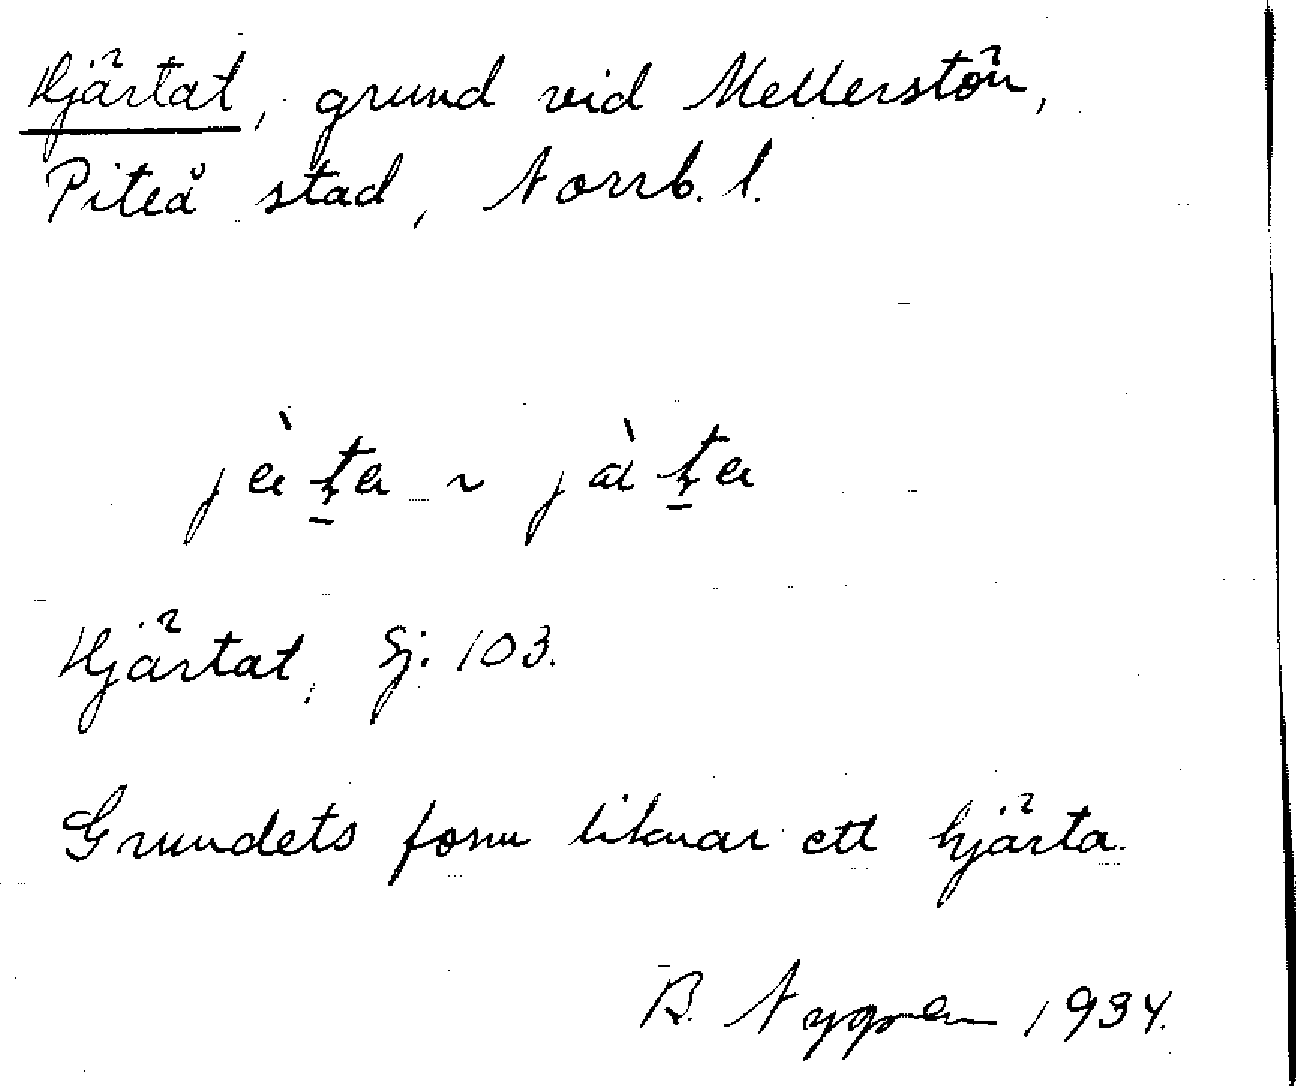 Hjärtat, grund vid Mellerstön,
Piteå stad, Norrb. l.
Hjärtat, Sj. 103.
Grundets form liknar ett hjärta.
B. Nygren 1934.